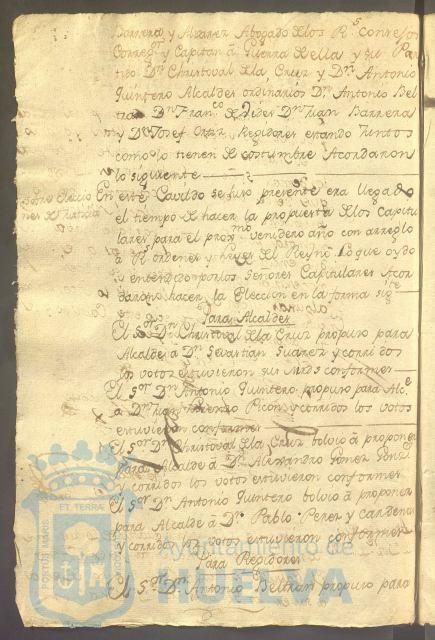 Barrera y Alvarez Abogado de los R.s Consejos
Correg.r y Capitan á Guerra della y su Par
tido D.n Christoval de la Cruz y D.n Antonio
Quintero Alcaldes ordinarios D.n Antonio Bel
tran D.n Fran.co D.n Juan Barrera
y D.n Josef Ortiz Regidores estando juntos
como lo tienen de costumbre Acordaron
lo siguiente
Sobre elecció
nes de
En este Cavildo se hizo presente era llegado
el tiempo de hacer la propuesta de los Capitu
lares para el prox.mo venidero año con arreglo
a R.s ordenes y Leyes del Reyno lo que oydo
y entendido por los Señores Capitulares Acor
daron hacer la Eleccion en la forma sig.te
Para Alcaldes
El S.or D.n Christoval de la Cruz propuso para
Alcalde á D.n Sevastian Suarez y corridos
los votos estuvieron sus Mrds conformes
El S.or D.n Antonio Quintero propuso para Alc.e
á D.n Juan Picon y corridos los votos
estuvieron conformes
El S.or D.n Christoval de la Cruz bolvió á proponer
para Alcalde á D.n Alexandro Gomez
y corridos los votos estuvieron conformes
El S.or D.n Antonio Quintero bolvió á proponer
para Alcalde á D.n Pablo Perez y Cardena
y corridos los votos estuvieron conformes
Para Regidores
El S.or D.n Antonio Beltran propuso para
PORTUS MARIS ET TERRAE CUSTODIA
Ayuntamiento de
HUELVA